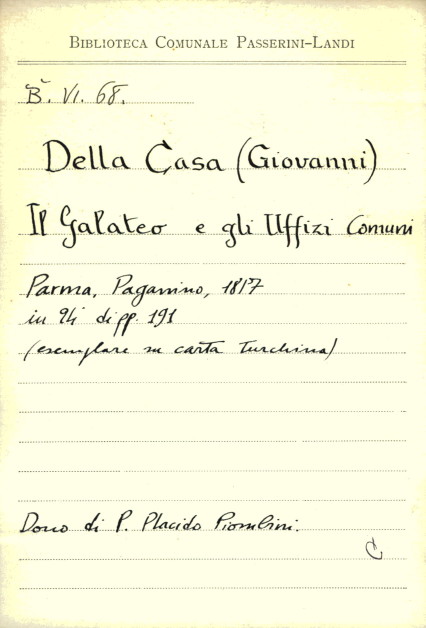 BIBLIOTECA COMUNALE PASSERINI-LANDI
B. VI. 68.
Della Casa (Giovanni)
Il Galateo e gli Uffizi Comuni
Parma, Paganino, 1817
in 24º di pp. 191
(esemplare su carta turchina)
Dono di P. Placido Piombini.
C